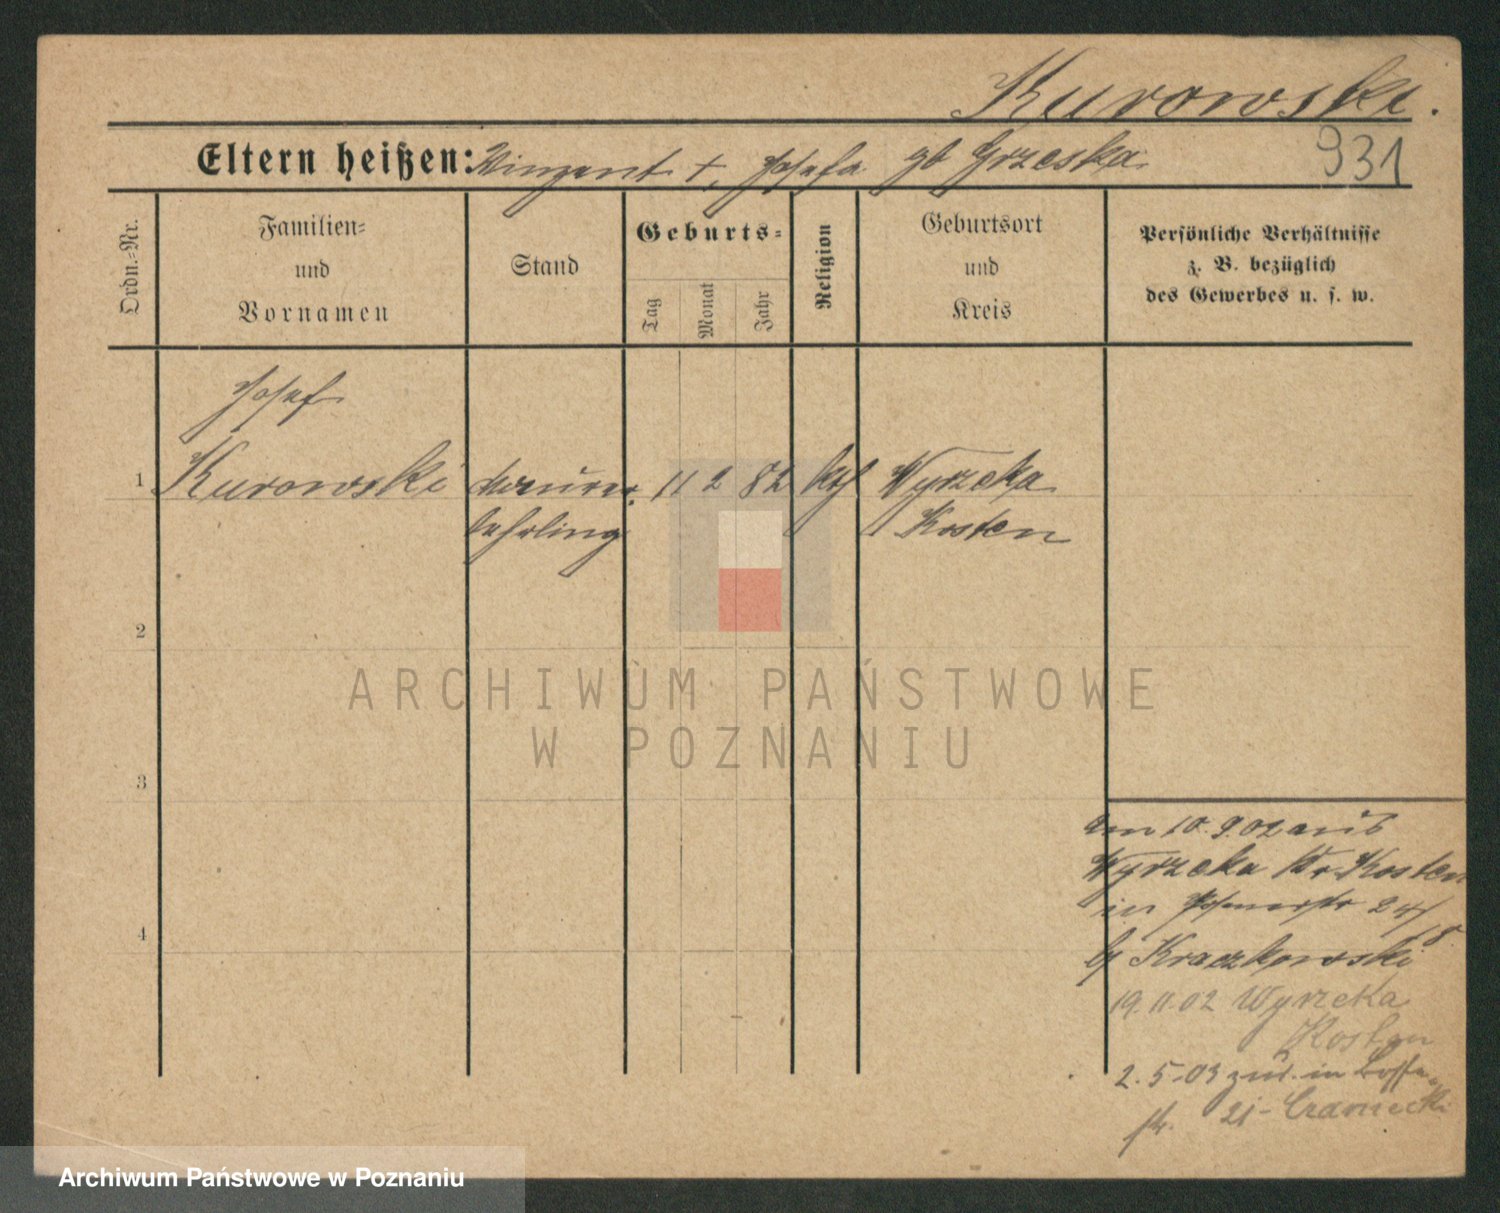 Kurowski.
931
Eltern heißen: Vinzent +, Josefa gb Grzeska
Ordn.-Nr.
Familien-
und
Vornamen
Stand
Geburts-
Tag
Monat
Jahr
Religion
Geburtsort
und
Kreis
Persönliche Verhältnisse
z. B. bezüglich
des Gewerbes u. s. w.
Josef
1 Kurowski Maurer 11 2 82 kth Wyrzeka
lehrling Kosten
2
3
4
am 10.9.02 aus
Wyrzeka Kr. Kosten
in 24/
18
b/ Kraczkowski
19.11.02 Wyrzeka
Kosten
2.5.03 zur. in
str. 21 - Czarnecki
ARCHIWUM PAŃSTWOWE
W POZNANIU
Archiwum Państwowe w Poznaniu